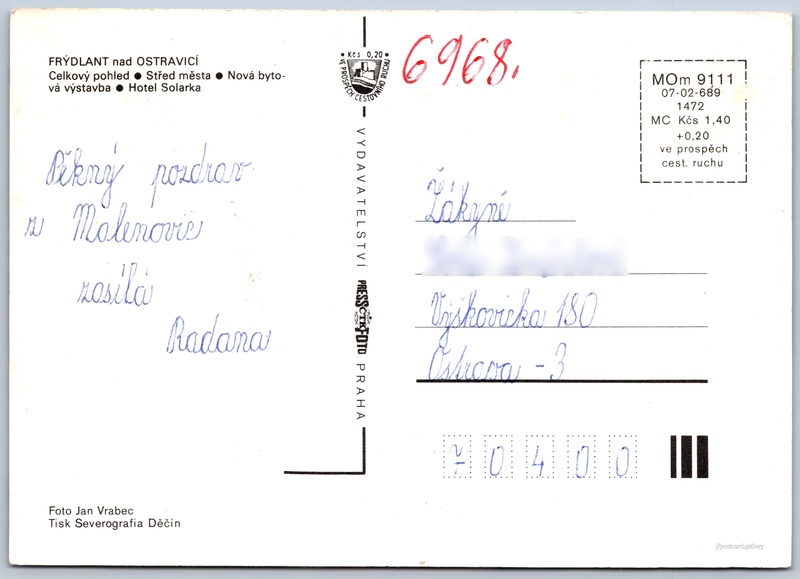 FRÝDLANT nad OSTRAVICÍ
Celkový pohled ● Střed města ● Nová byto-
vá výstavba ● Hotel Solarka
Pěkný pozdrav
z Malenovic
zasílá
Radana
Foto Jan Vrabec
Tisk Severografia Děčín
Kčs 0,20
VE PROSPĚCH CESTOVNÍHO RUCHU
VYDAVATELSTVÍ
PRESSFOTO
ČTK
PRAHA
6968.
MOm 9111
07-02-689
1472
MC Kčs 1,40
+0,20
ve prospěch
cest. ruchu
Žákyně
Výškovická 180
Ostrava - 3
70400
//postcard.gallery